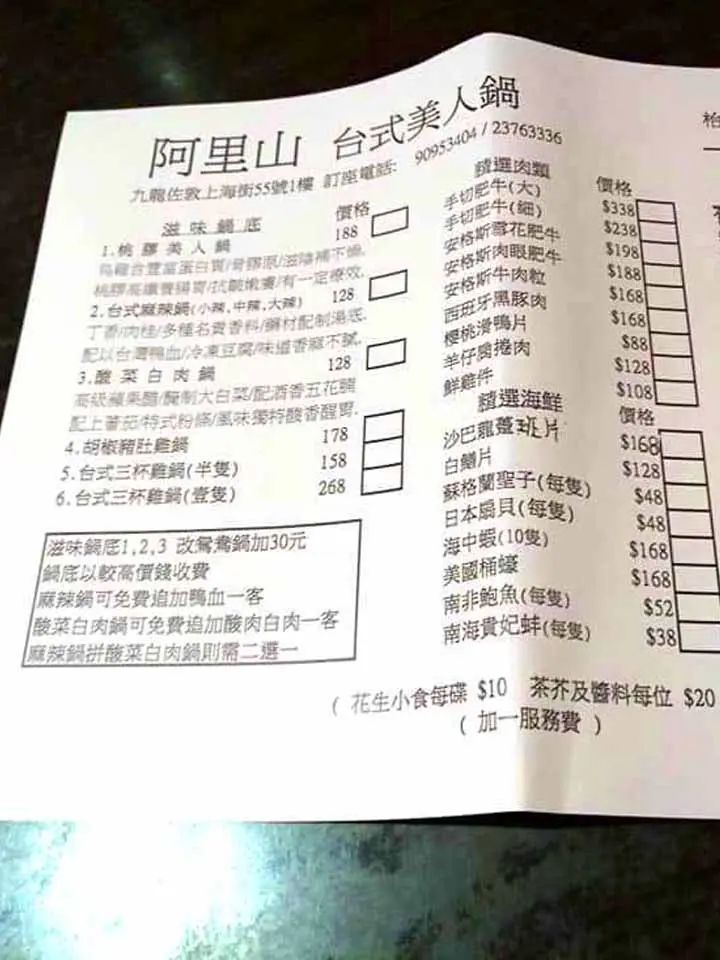 阿里山 台式美人鍋
九龍佐敦上海街55號1樓 訂座電話: 90953404 / 23763336
滋味鍋底 價格
1.桃膠美人鍋 188
烏雞含豐富蛋白質/骨膠原/滋陰補不燥.
桃膠高纖養腸胃/抗皺嫩膚/有一定療效.
2.台式麻辣鍋(小辣,中辣,大辣) 128
丁香/肉桂/多種名貴香料/藥材配制湯底.
配以台灣鴨血/冷凍豆腐/味道香麻不膩.
3.酸菜白肉鍋 128
高級蘋果醋/醃制大白菜/配酒香五花腩
配上蕃茄/特式粉條/風味獨特酸香醒胃.
4.胡椒豬肚雞鍋 178
5.台式三杯雞鍋(半隻) 158
6.台式三杯雞鍋(壹隻) 268
滋味鍋底1,2,3 改鴛鴦鍋加30元
鍋底以較高價錢收費
麻辣鍋可免費追加鴨血一客
酸菜白肉鍋可免費追加酸肉白肉一客
麻辣鍋拼酸菜白肉鍋則需二選一
請選肉類 價格
手切肥牛(大) $338
手切肥牛(細) $238
安格斯雪花肥牛 $198
安格斯肉眼肥牛 $188
安格斯牛肉粒 $168
西班牙黑豚肉 $168
櫻桃滑鴨片 $88
羊仔肩捲肉 $128
鮮雞件 $108
請選海鮮 價格
沙巴龍躉班片 $168
白鱔片 $128
蘇格蘭聖子(每隻) $48
日本扇貝(每隻) $48
海中蝦(10隻) $168
美國桶蠔 $168
南非鮑魚(每隻) $52
南海貴妃蚌(每隻) $38
( 花生小食每碟 $10 茶芥及醬料每位 $20
( 加一服務費 )